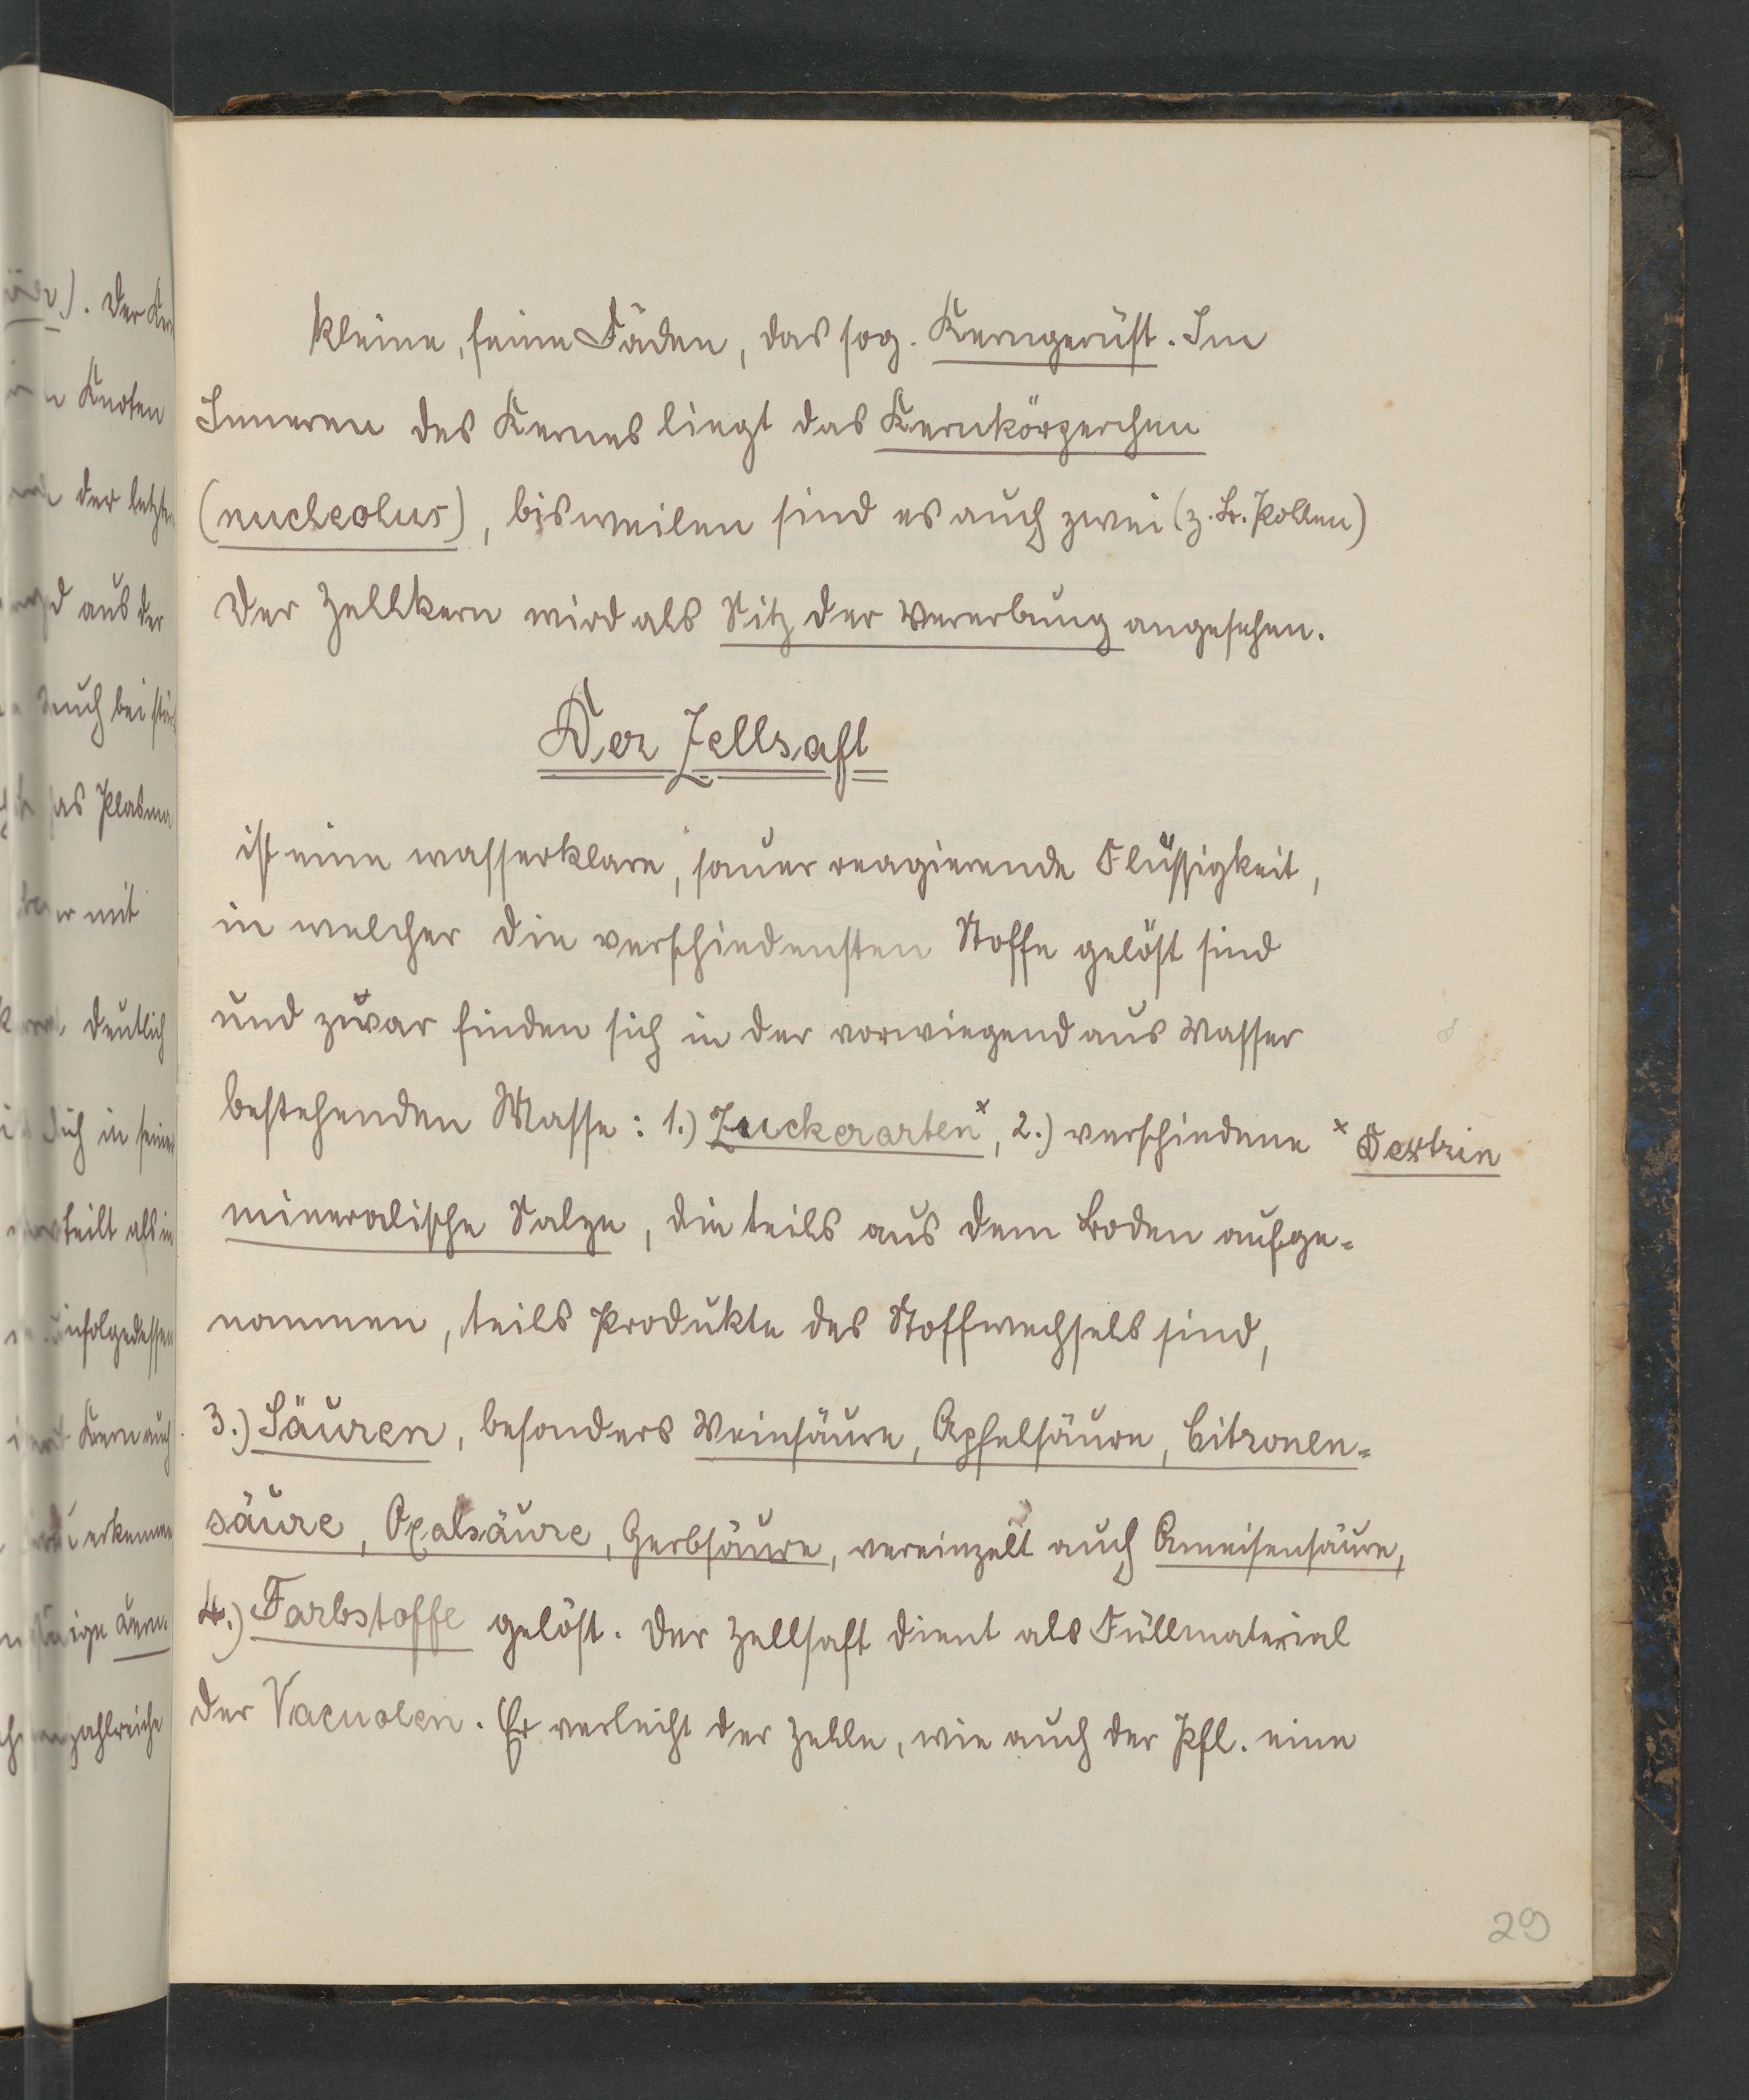 kleine, feine Fäden, das sog. Kerngerüst. Im
Inneren des Kernes liegt das Kernkörperchen
(nucleolus), bisweilen sind es auch zwei (z. B. Pollen)
Der Zellkern wird als Sitz der Vererbung angesehen.
Der Zellsaft
ist eine wasserklare, sauer reagierende Flüssigkeit,
in welcher die verschiedensten Stoffe gelöst sind
und zwar finden sich in der vorwiegend aus Wasser
bestehenden Masse: 1.) Zuckerarten x, 2.) verschiedene x Dextrin
mineralische Salze, die teils aus dem Boden aufge=
nommen, teils Produkte des Stoffwechsels sind,
3.) Säuren, besonders Weinsäure, Apfelsäure, Citronen=
säure, Oxalsäure, Gerbsäure, vereinzelt auch Ameisensäure,
4.) Farbstoffe gelöst. Der Zellsaft dient als Füllmaterial
der Vacuolen. Er verleiht der Zelle, wie auch der Pfl. eine
29
Der
Knoten
der letzte
aus der
auch bei
das Plasma
mit
deutlich
sich in seiner
teilt als in
infolgedessen
Kern auch
erkennen
Kern=
zahlreiche